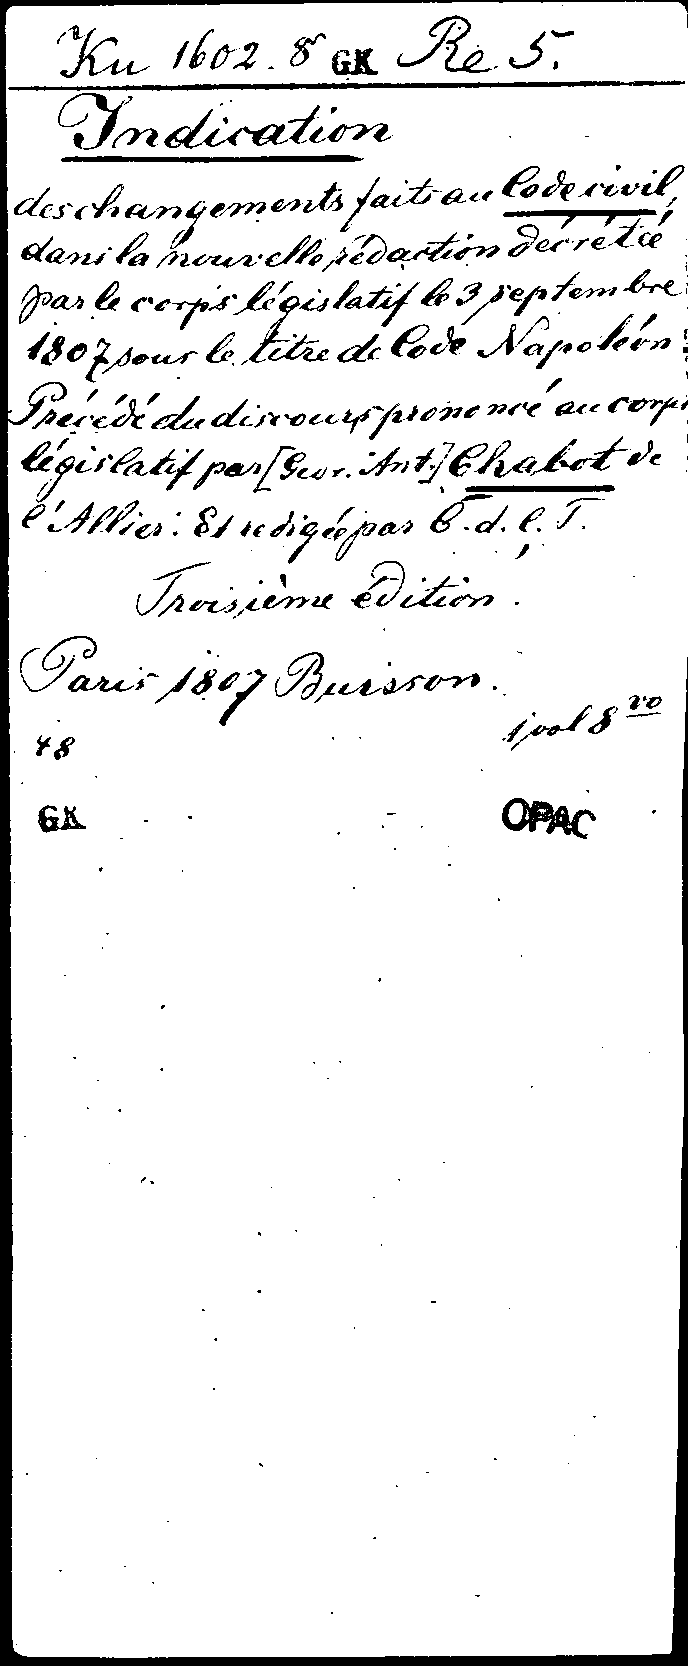 Ku 1602.8 GK Re 5.
Indication
des changements faits au Code civil,
dans la nouvelle rédaction décrétée
par le corps législatif le 3 septembre
1807 sous le titre de Code Napoléon
Précédé du discours prononcé au corps
législatif par [Geor. Ant.] Chabot de
l'Allier. Et redigée par C. d. l. T.
Troisième édition.
Paris 1807 Buisson.
1 vol 8vo
48
GK OPAC